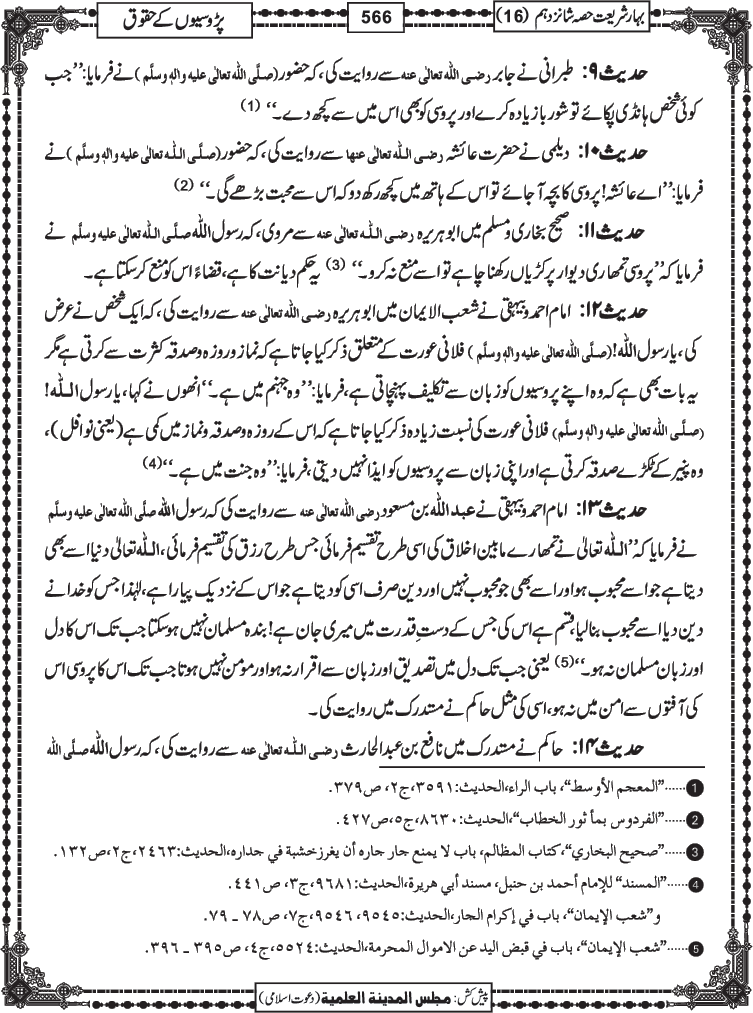 بہارِ شریعت حصہ شانزدہم (16)
566
پڑوسیوں کے حقوق
حدیث ۹: طبرانی نے جابر رضی اللہ تعالٰی عنہ سے روایت کی، کہ حضور (صلَّی اللہ تعالٰی علیہ واٰلہٖ وسلَّم) نے فرمایا: ’’جب
کوئی شخص ہانڈی پکائے تو شوربا زیادہ کرے اور پروسی کو بھی اس میں سے کچھ دے۔‘‘ (1)
حدیث ۱۰: دیلمی نے حضرت عائشہ رضی اللہ تعالٰی عنہا سے روایت کی، کہ حضور (صلَّی اللہ تعالٰی علیہ واٰلہٖ وسلَّم) نے
فرمایا: ’’اے عائشہ! پروسی کا بچہ آ جائے تو اس کے ہاتھ میں کچھ رکھ دو کہ اس سے محبت بڑھے گی۔‘‘ (2)
حدیث ۱۱: صحیح بخاری و مسلم میں ابوہریرہ رضی اللہ تعالٰی عنہ سے مروی، کہ رسول اللہ صلَّی اللہ تعالٰی علیہ واٰلہٖ وسلَّم نے
فرمایا کہ ’’پروسی تمھاری دیوار پر کڑیاں رکھنا چاہے تو اسے منع نہ کرو۔‘‘ (3) یہ حکم دیانت کا ہے، قضاءً اس کو منع کرسکتا ہے۔
حدیث ۱۲: امام احمد و بیہقی نے شعب الایمان میں ابوہریرہ رضی اللہ تعالٰی عنہ سے روایت کی، کہ ایک شخص نے عرض
کی، یارسول اللہ! (صلَّی اللہ تعالٰی علیہ واٰلہٖ وسلَّم) فلانی عورت کے متعلق ذکر کیا جاتا ہے کہ نماز و روزہ و صدقہ کثرت سے کرتی ہے مگر
یہ بات بھی ہے کہ وہ اپنے پروسیوں کو زبان سے تکلیف پہنچاتی ہے، فرمایا: ’’وہ جہنم میں ہے۔‘‘ انھوں نے کہا، یارسول اللہ!
(صلَّی اللہ تعالٰی علیہ واٰلہٖ وسلَّم) فلانی عورت کی نسبت زیادہ ذکر کیا جاتا ہے کہ اس کے روزہ و صدقہ و نماز میں کمی ہے (یعنی نوافل)،
وہ پنیر کے ٹکڑے صدقہ کرتی ہے اور اپنی زبان سے پروسیوں کو ایذا نہیں دیتی، فرمایا: ’’وہ جنت میں ہے۔‘‘ (4)
حدیث ۱۳: امام احمد و بیہقی نے عبد اللہ بن مسعود رضی اللہ تعالٰی عنہ سے روایت کی کہ رسول اللہ صلَّی اللہ تعالٰی علیہ وسلَّم
نے فرمایا کہ ’’اللہ تعالیٰ نے تمھارے مابین اخلاق کی اسی طرح تقسیم فرمائی جس طرح رزق کی تقسیم فرمائی، اللہ تعالیٰ دنیا اسے بھی
دیتا ہے جو اسے محبوب ہو اور اسے بھی جو محبوب نہیں اور دین صرف اسی کو دیتا ہے جو اس کے نزدیک پیارا ہے، لہٰذا جس کو خدا نے
دین دیا اسے محبوب بنالیا، قسم ہے اس کی جس کے دستِ قدرت میں میری جان ہے! بندہ مسلمان نہیں ہوسکتا جب تک اس کا دل
اور زبان مسلمان نہ ہو۔‘‘ (5) یعنی جب تک دل میں تصدیق اور زبان سے اقرار نہ ہو اور مومن نہیں ہوتا جب تک اس کا پروسی اس
کی آفتوں سے امن میں نہ ہو، اسی کی مثل حاکم نے مستدرک میں روایت کی۔
حدیث ۱۴: حاکم نے مستدرک میں نافع بن عبد الحارث رضی اللہ تعالٰی عنہ سے روایت کی، کہ رسول اللہ صلَّی اللہ
1 ......”المعجم الأوسط“، باب الراء، الحدیث: ۳۵۹۱، ج۲، ص۳۷۹.
2 ......”الفردوس بمأثور الخطاب“، الحدیث: ۸۶۳۰، ج۵، ص۴۲۷.
3 ......”صحیح البخاري“، کتاب المظالم، باب لا یمنع جار جاره أن یغرز خشبة في جداره، الحدیث: ۲۴۶۳، ج۲، ص۱۳۲.
4 ......”المسند“ للإمام أحمد بن حنبل، مسند أبي هریرة، الحدیث: ۹۶۸۱، ج۳، ص۴۴۱.
و”شعب الإیمان“، باب في إکرام الجار، الحدیث: ۹۵۴۵، ۹۵۴۶، ج۷، ص۷۸ ـ ۷۹.
5 ......”شعب الإیمان“، باب في قبض الید عن الاموال المحرمة، الحدیث: ۵۵۲۴، ج۴، ص۳۹۵ ـ ۳۹۶.
پیش کش: مجلس المدینة العلمیة (دعوت اسلامی)